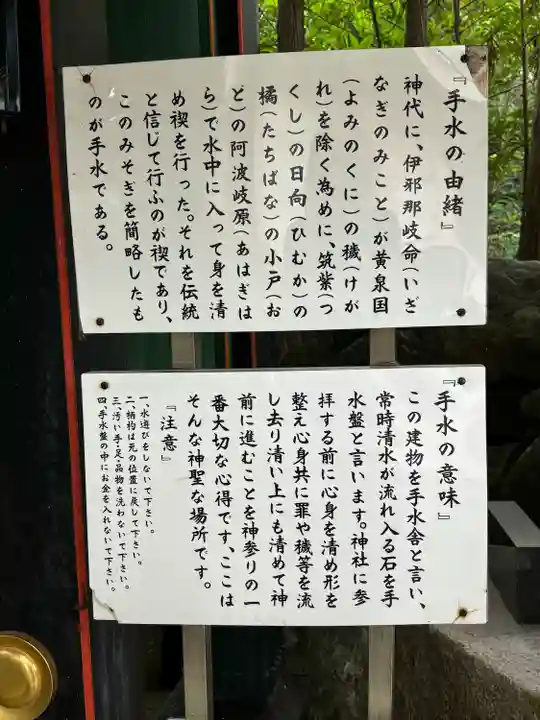 『手水の由緒』
神代に、伊邪那岐命(いざ
なぎのみこと)が黄泉国
(よみのくに)の穢(けが
れ)を除く為めに、筑紫(つ
くし)の日向(ひむか)の
橘(たちばな)の小戸(お
ど)の阿波岐原(あはぎは
ら)で水中に入って身を清
め禊を行った。それを伝統
と信じて行ふのが禊であり、
このみそぎを簡略したも
のが手水である。
『手水の意味』
この建物を手水舎と言い、
常時清水が流れ入る石を手
水盤と言います。神社に参
拝する前に心身を清め形を
整え心身共に罪や穢等を流
し去り清い上にも清めて神
前に進むことを神参りの一
番大切な心得です、ここは
そんな神聖な場所です。
『注意』
一、水遊びをしないで下さい。
二、柄杓は元の位置に戻して下さい。
三、汚い手・足・品物を洗わないで下さい。
四、手水盤の中にお金を入れないで下さい。